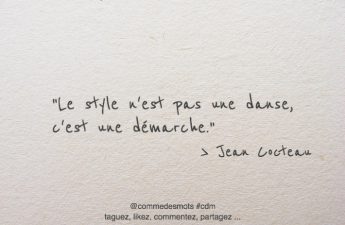 "Le style n'est pas une danse,
c'est une démarche."
> Jean Cocteau
@commedesmots #cdm
taguez, likez, commentez, partagez ...